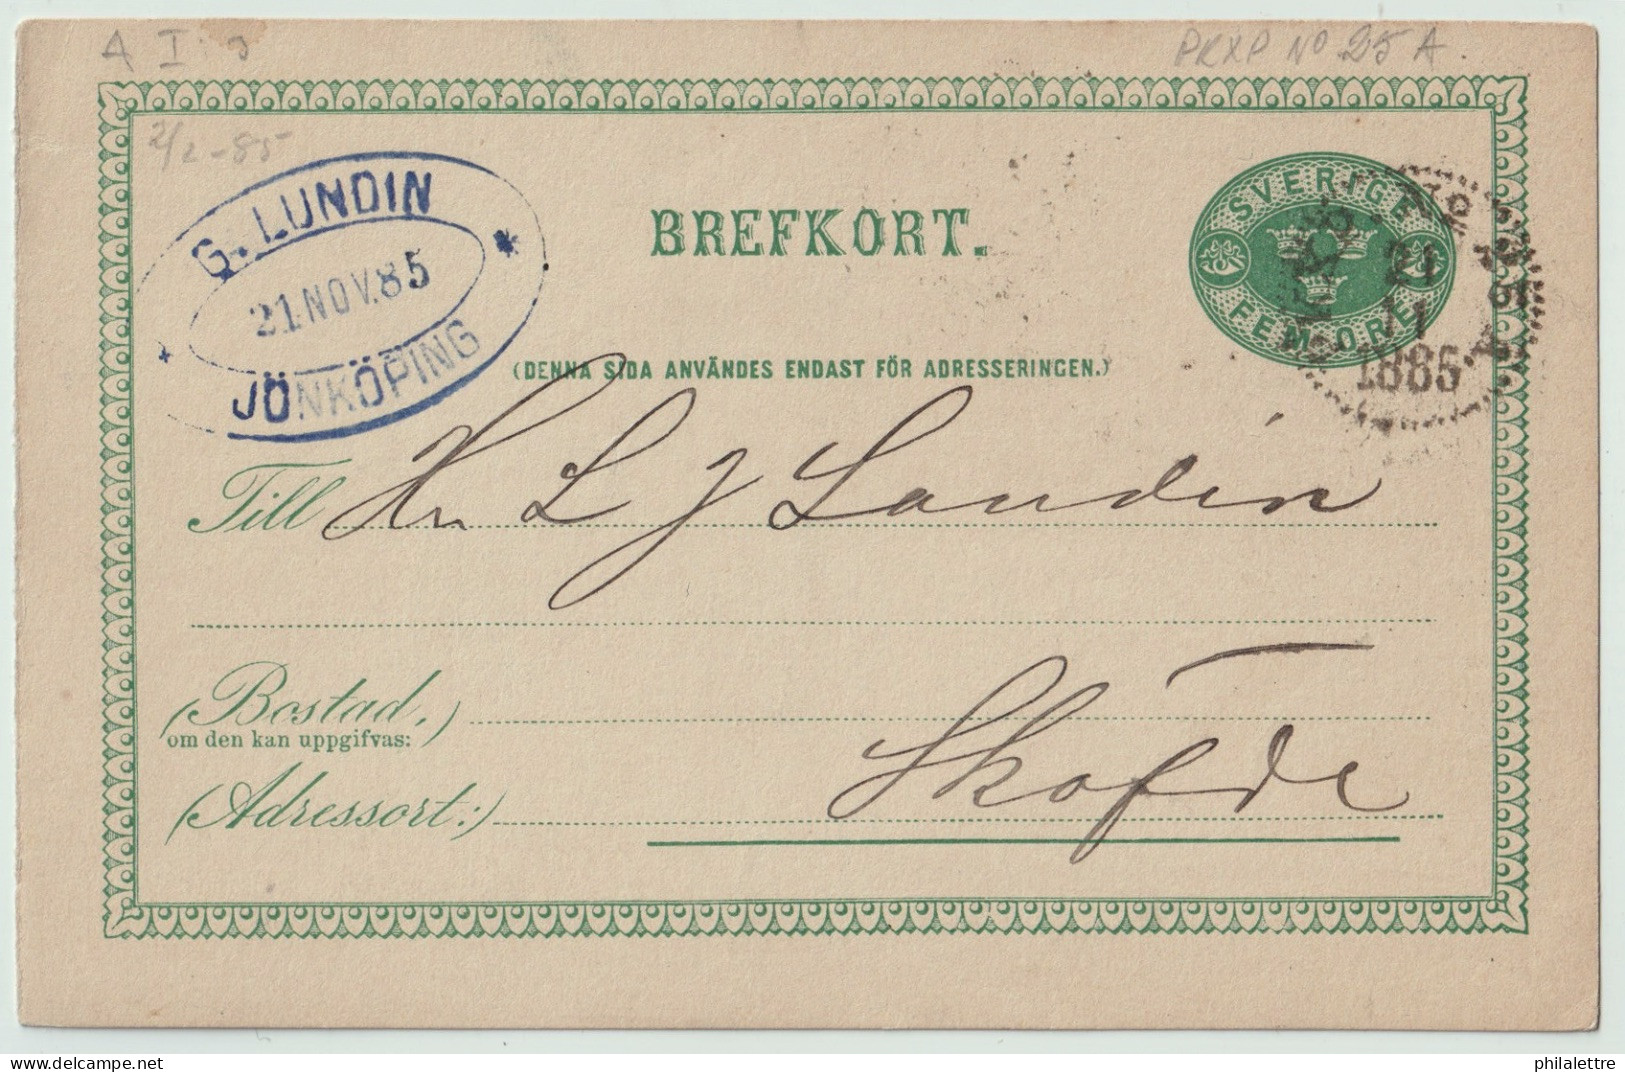 A I
PKXP No 25 A.
2/2-85
G. LUNDIN
21.NOV.85
JÖNKÖPING
BREFKORT.
SVERIGE
FEM ÖRE
21
11
1885
(DENNA SIDA ANVÄNDES ENDAST FÖR ADRESSERINGEN.)
Till Hr L J Lundin
(Bostad,)
om den kan uppgifvas:
(Adressort:) Sköfde
philalettre | delcampe.net